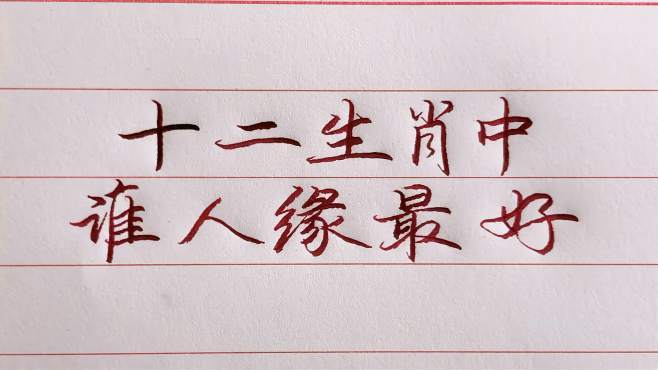 十二生肖中
谁人缘最好